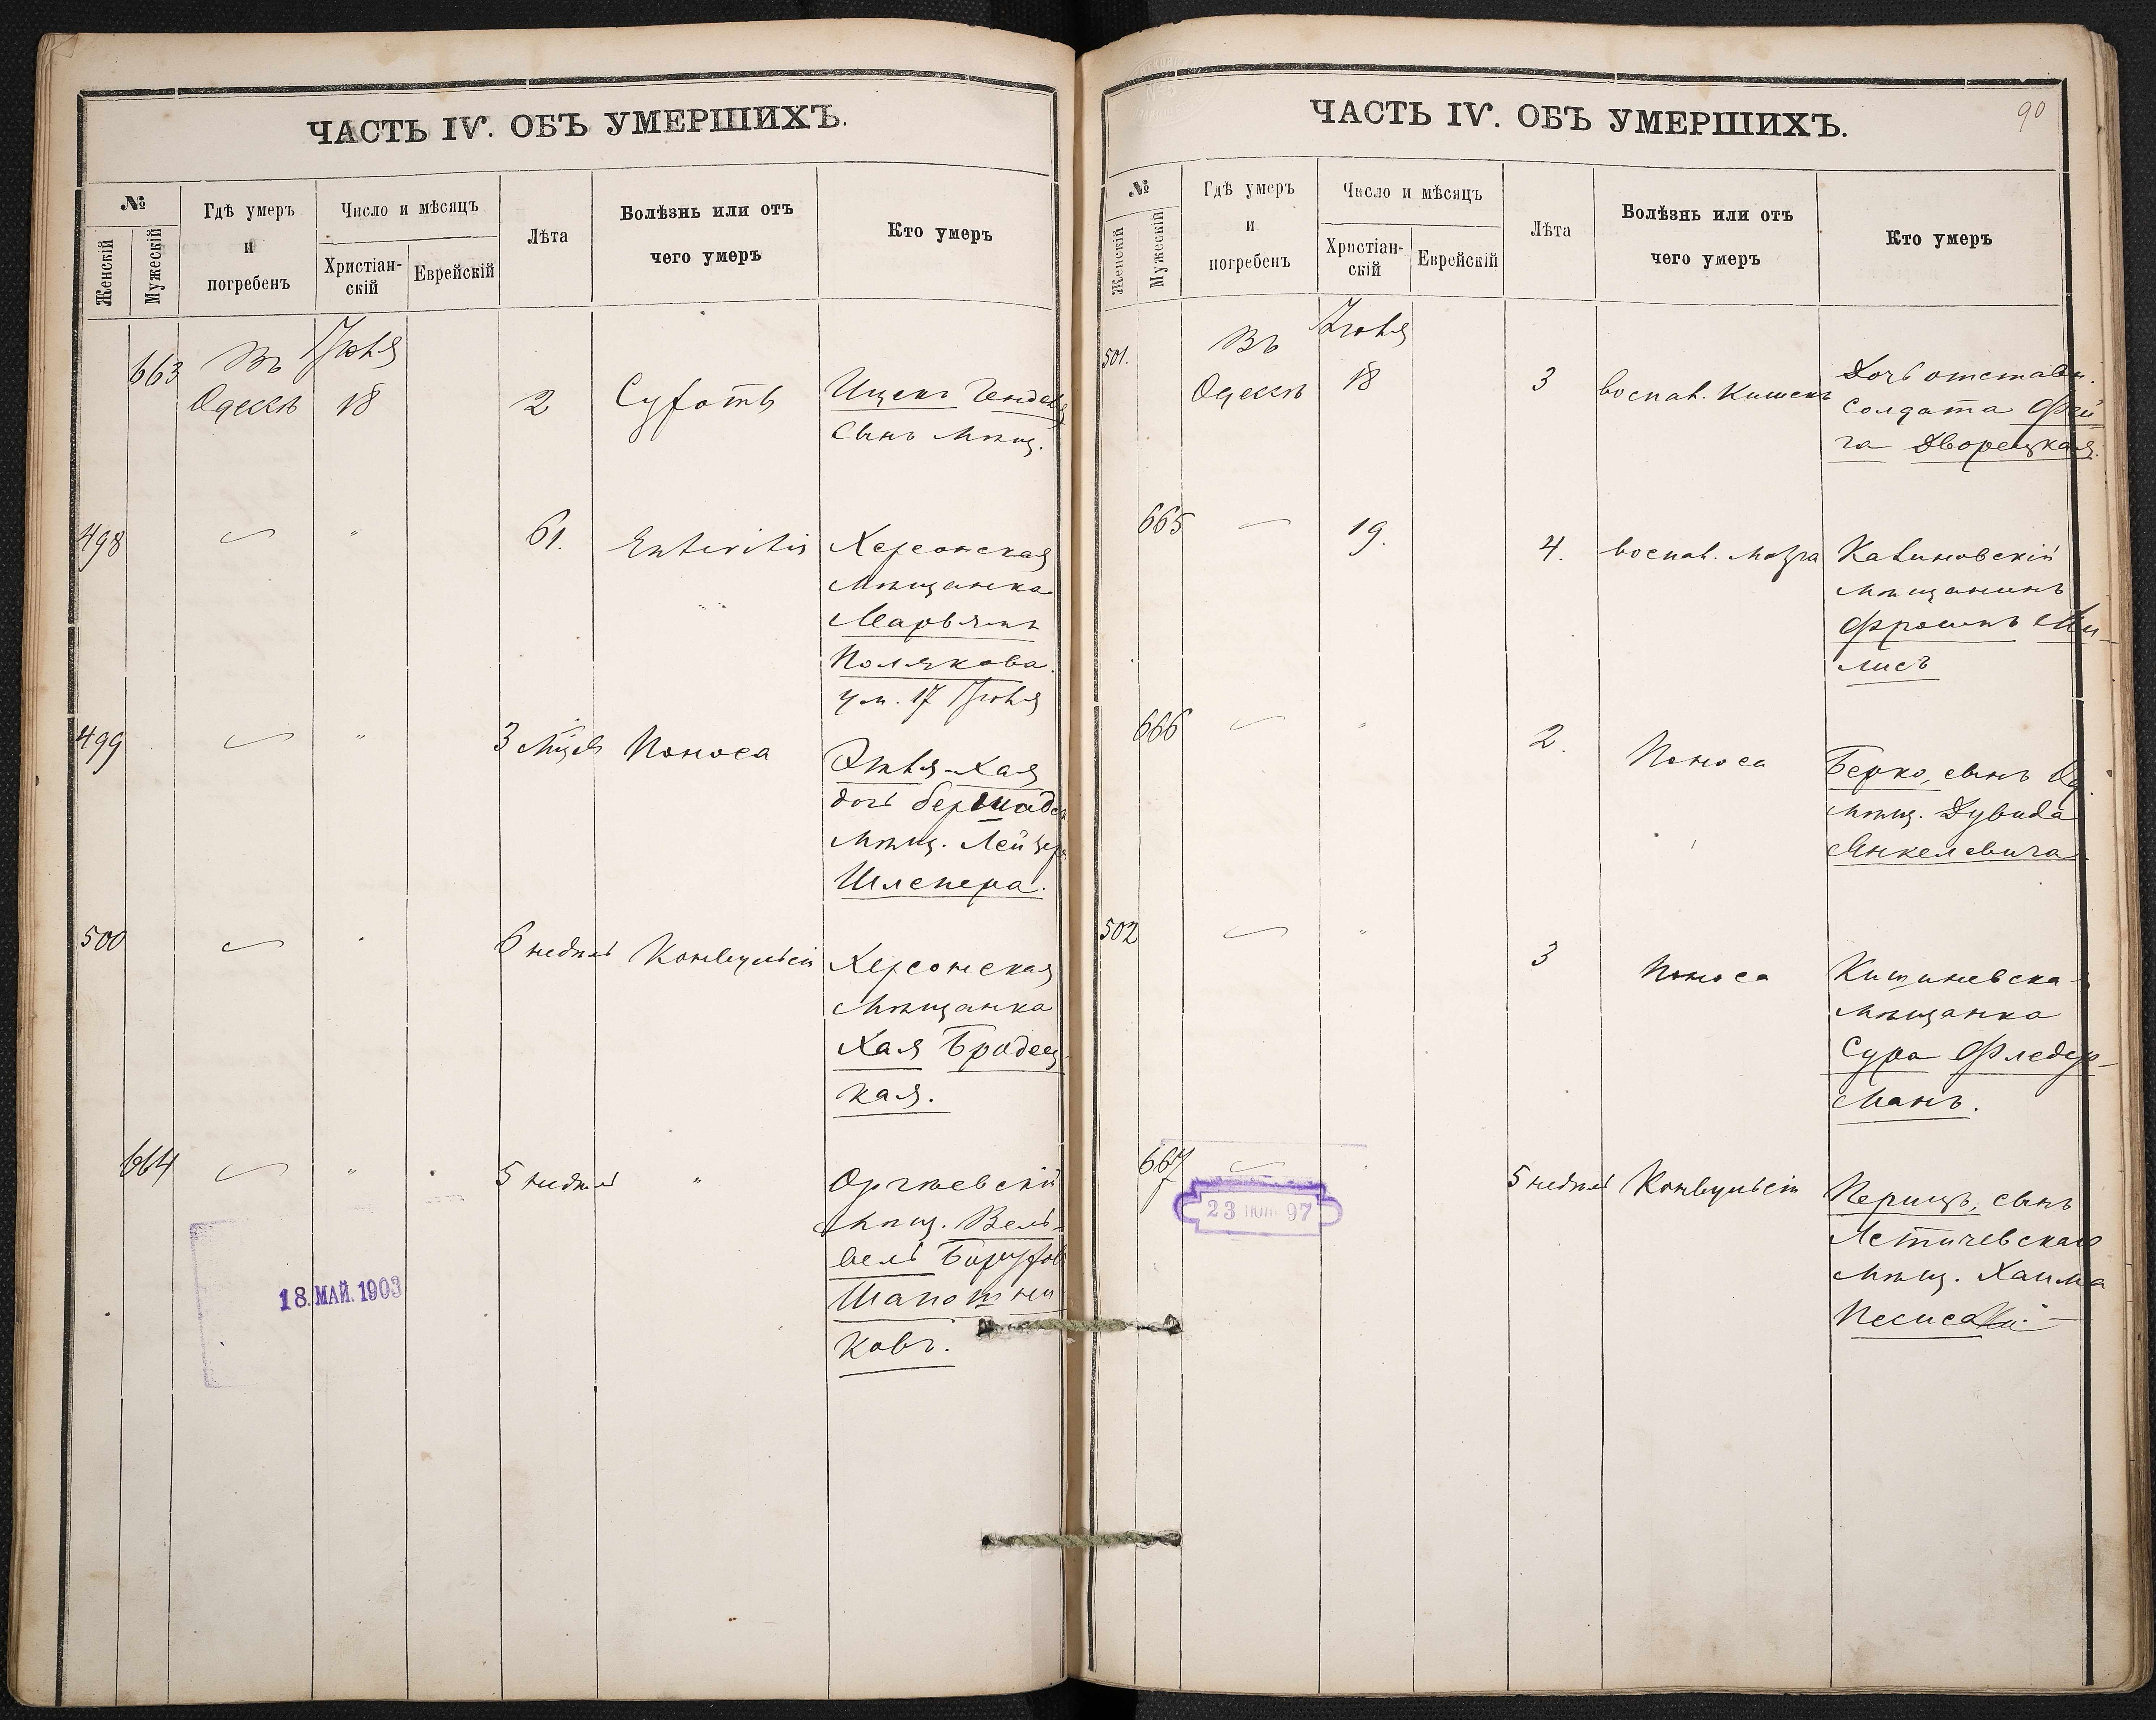 ЧАСТЬ IV. ОБЪ УМЕРШИХЪ.
№
Женскій
Мужескій
Гдѣ умеръ
и
погребенъ
Число и мѣсяцъ
Христіан-
скій
Еврейскій
Лѣта
Болѣзнь или отъ
чего умеръ
Кто умеръ
663
Въ
Одессѣ
Іюля
18
2
Сухоты
Ицекъ
сынъ мѣщ.
498
"
61.
Enteritis
Херсонская
мѣщанка
Марьямъ
Полякова.
ум. 17 Іюля
499
"
3 мѣс.
Поноса
Этля-Хая
дочь бершадск
мѣщ. Лейзера
Шлепера.
500
"
6 недѣль
Конвульсіи
Херсонская
мѣщанка
Хая Бродец-
кая.
664
"
5 недѣль
"
Оргѣевскій
мѣщ. Вель-
вель Боруховъ
Шапошни
ковъ.
18. МАЙ. 1903
ЧАСТЬ IV. ОБЪ УМЕРШИХЪ.
90
№
Женскій
Мужескій
Гдѣ умеръ
и
погребенъ
Число и мѣсяцъ
Христіан-
скій
Еврейскій
Лѣта
Болѣзнь или отъ
чего умеръ
Кто умеръ
501.
Въ
Одессѣ
Іюля
18
3
воспал. Кишекъ
Дочь отставн.
солдата Фей
га Дворецкая.
665
19.
4.
воспал. мозга
Калиновскій
мѣщанинъ
Фроимъ Ми-
лисъ
666
"
2.
Поноса
Берко, сынъ
мѣщ. Дувида
Янкелевича
502
"
3
Поноса
Кишиневска
мѣщанка
Сура Фледер-
манъ.
667
5 недѣль
Конвульсіи
Перицъ, сынъ
Летичевскаго
мѣщ. Хаима
23 97